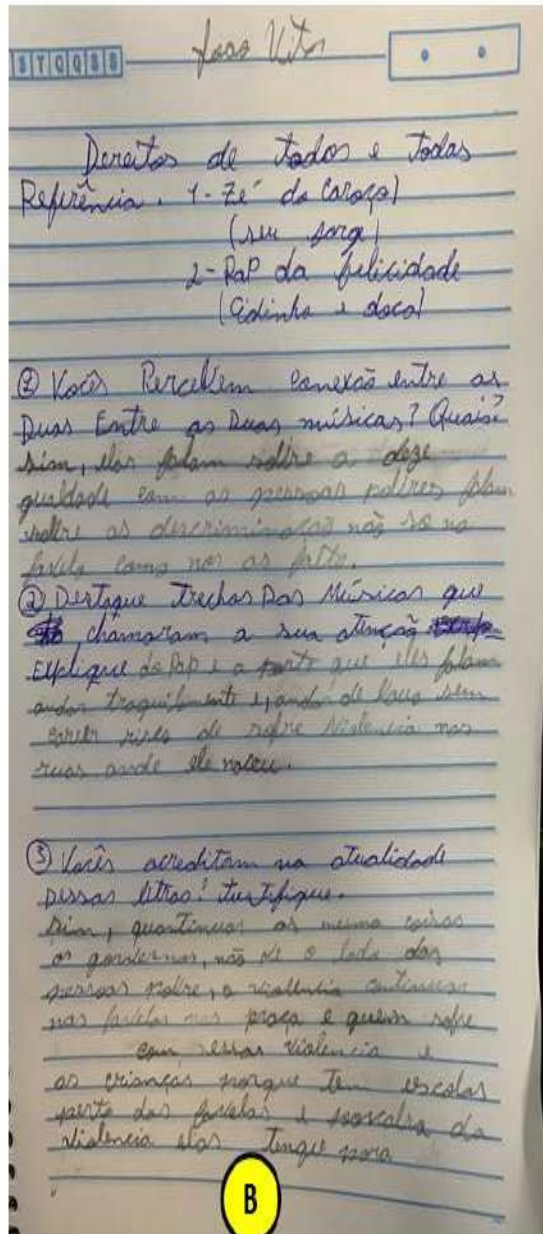 STQQSS João Vitor
Dereitos de todos e todas
Referência. 1- Zé do Caroço)
(seu Jorge)
2- RaP da felicidade
(Cidinho e doca)
① Vocês Percebem conexão entre as
Duas Entre as Duas músicas? Quais?
sim, elas falam sobre a deze
gualdade com as pessoas pobres falam
sobre as descriminação não so na
favela como nos as
② Destaque trechos Das Músicas que
chamaram a sua atenção
Explique do Rap e a parte que eles falam
andar traquilamente e, anda de sem
correr risco de sofre violencia nas
ruas onde ele naceu.
③ Vocês acreditam na atualidade
Dessas letras? Justifique.
Sim, quantinuas as mesma coisas
os governos, não ve o lado das
pessoas pobre, a violencia continuar
nas favelas nas praça e quem sofre
com essas violencia e
as crianças porque tem escolas
perto das favelas e da
violencia elas tenque para
B